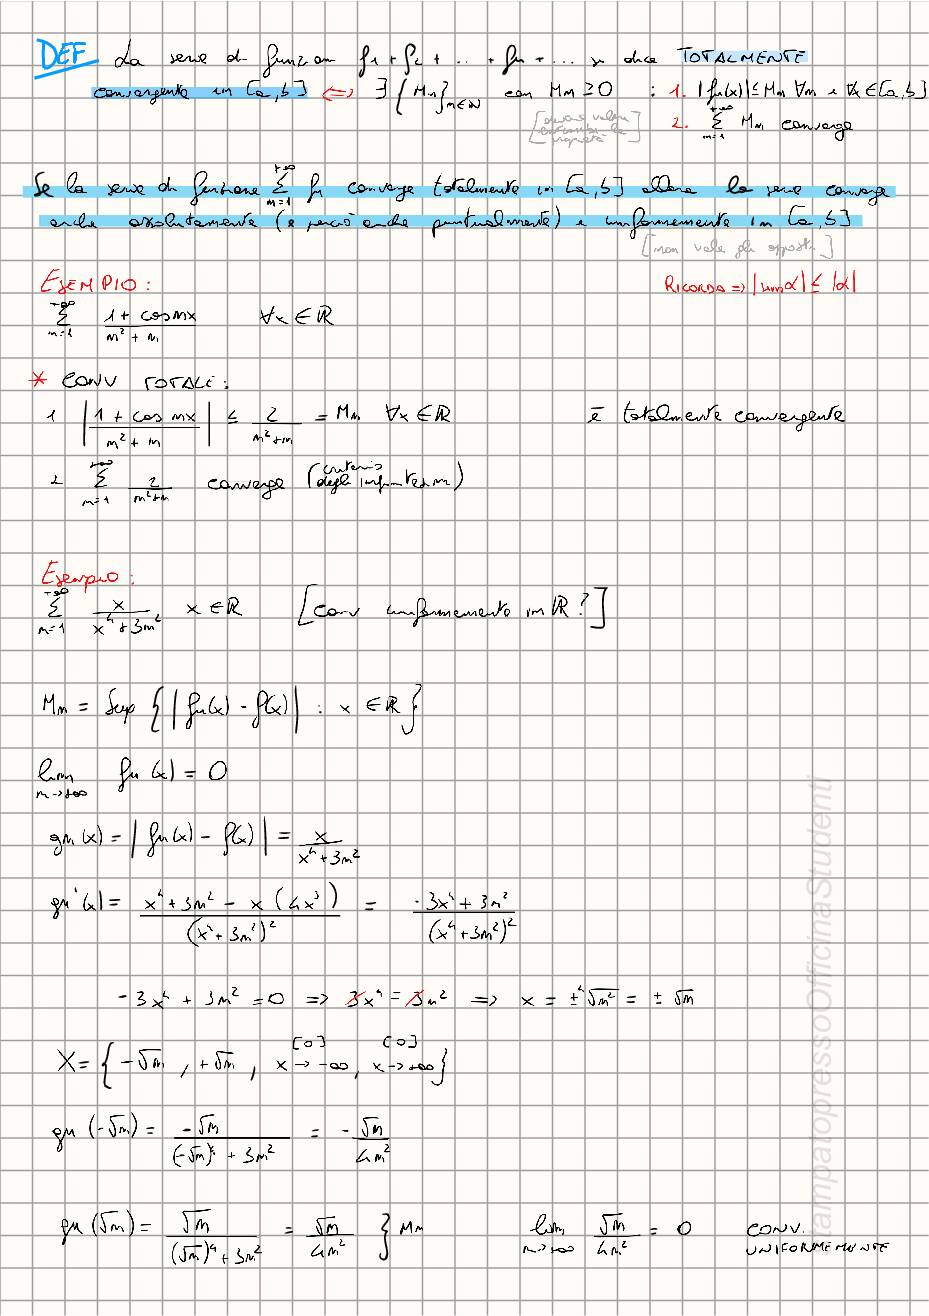 DEF La serie di funzioni f1 + f2 + ... + fn + ... si dice TOTALMENTE
convergente in [a,b] <=> ∃ {Mn}n∈N con Mn ≥ 0 : 1. |fn(x)| ≤ Mn ∀n e ∀x ∈ [a,b]
2. +∞ Σ n=1 Mn converge
[devono valere entrambe le proprietà]
Se la serie di funzione +∞ Σ n=1 fn converge totalmente in [a,b] allora la serie converge
anche assolutamente (e perciò anche puntualmente) e uniformemente in [a,b]
[non vale gli opposti]
ESEMPIO: RICORDA => |sin α| ≤ |α|
+∞ Σ n=1 (1 + cos nx)/(n² + n) ∀x ∈ R
* CONV TOTALE:
1 |(1 + cos nx)/(n² + n)| ≤ 2/(n²+n) = Mn ∀x ∈ R è totalmente convergente
2 +∞ Σ n=1 2/(n²+n) converge (criterio degli infinitesimi)
Esempio:
+∞ Σ n=1 x/(x⁴ + 3n²) x ∈ R [conv uniformemente in R?]
Mn = Sup {|fn(x) - f(x)| : x ∈ R}
lim n→+∞ fn(x) = 0
gn(x) = |fn(x) - f(x)| = x/(x⁴ + 3n²)
gn'(x) = (x⁴ + 3n² - x(4x³))/(x⁴ + 3n²)² = (-3x⁴ + 3n²)/(x⁴ + 3n²)²
-3x⁴ + 3n² = 0 => 3x⁴ = 3n² => x = ±⁴√n² = ±√n
[0] [0]
X = {-√n, +√n, x → -∞, x → +∞}
gn(-√n) = -√n/((-√n)⁴ + 3n²) = -√n/4n²
gn(√n) = √n/((√n)⁴ + 3n²) = √n/4n² } Mn lim n→+∞ √n/4n² = 0 CONV.
UNIFORMEMENTE
StampatopressoOfficinaStudenti